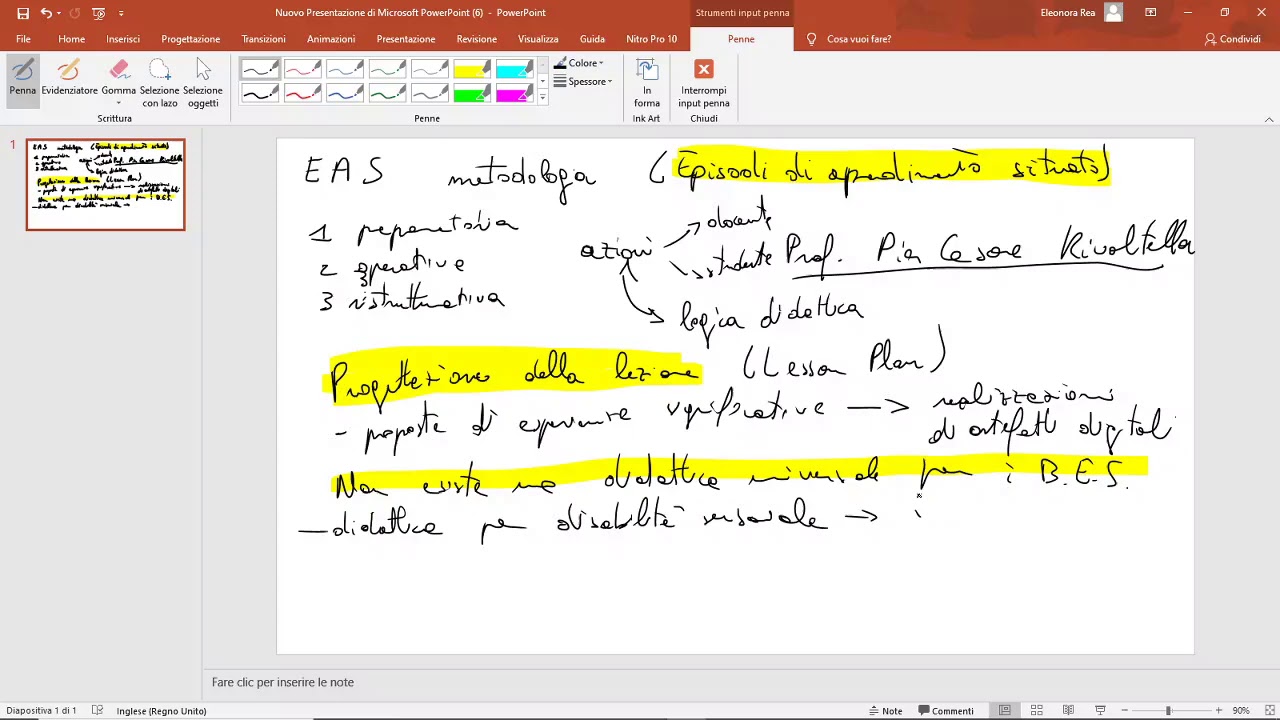 Nuovo Presentazione di Microsoft PowerPoint (6) - PowerPoint
Strumenti input penna
Eleonora Rea
File Home Inserisci Progettazione Transizioni Animazioni Presentazione Revisione Visualizza Guida Nitro Pro 10 Penne Cosa vuoi fare? Condividi
Penna Evidenziatore Gomma Selezione con lazo Selezione oggetti
Colore
Spessore
In forma
Interrompi input penna
Scrittura Penne Ink Art Chiudi
1
EAS metodologa (Episodi di aprendimento situato)
1 preparatoria
2 operative
3 ristrutturativa
azioni
docente
studente
logica didattica
Prof. Pier Cesare Rivoltella
Progettazione della lezione (Lesson Plan)
- proposte di esperienze significative → realizzazioni di artefatti digitali
Non esiste una didattica universale per i B.E.S.
- didattica per disabilità sensoriale → i
Fare clic per inserire le note
Diapositiva 1 di 1 Inglese (Regno Unito) Note Commenti 90%